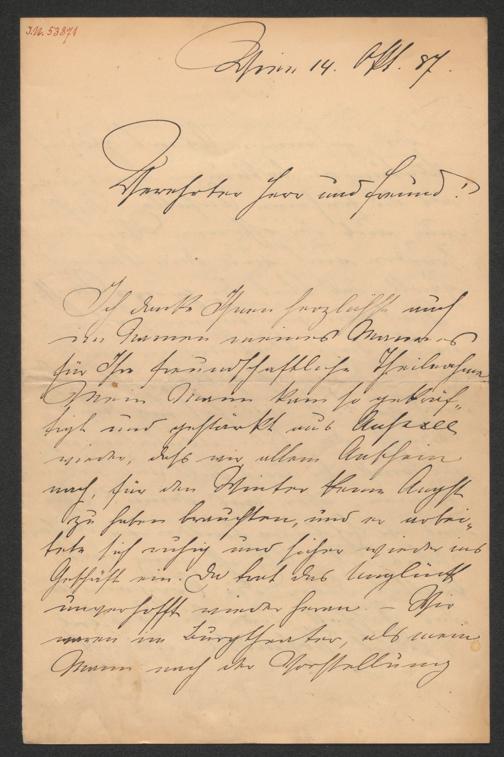 I.N. 53871
Wien 14. Okt. 87.
Verehrter Herr und Freund!
Ich danke Ihnen herzlichst auch
im Namen meines Mannes
für Ihre freundschaftliche Theilnahme
Mein Mann kam so gekräf-
tigt und gestärkt aus Aussee
wieder, daß wir allem Anschein
nach, für den Winter keine Angst
zu haben brauchten, und er arbei-
tete sich ruhig und sicher wieder ins
Geschäft ein. Da trat das Unglück
unverhofft wieder heran. – Wir
waren im Burgtheater, als mein
Mann nach der Vorstellung